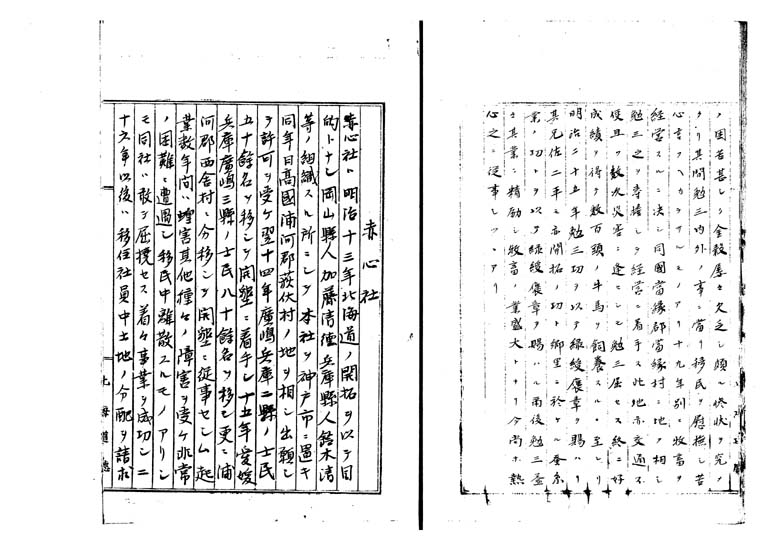 ノ困苦甚シク金穀屡々欠乏シ頗ル惨状ヲ究ノ
タリ其間勉三内外ノ事ニ當リ移民ヲ慰撫シ苦
心言フヘカラサルモノアリ十九年別ニ牧畜ヲ
経営スルニ決シ同國當縁郡當縁村ニ地ヲ相シ
勉三之ヲ専擔シテ経営ニ着手ス此地亦交通不
便且ツ数次災害ニ逢シモ勉三屈セス終ニ好
成績ヲ得テ数百頭ノ牛馬ヲ飼養スルニ至レリ
明治二十五年勉三功ヲ以テ緑綬褒章ヲ賜ハリ
其兄佐二平モ亦開拓ノ功ト郷里ニ於ケル養糸
業ノ功トヲ以テ緑綬褒章ヲ賜ハル爾後勉三益
々其業ニ精励シ牧畜ノ業盛大トナリ今尚ホ熱
心之ニ従事シツヽアリ
赤心社
赤心社ハ明治十三年北海道ノ開拓ヲ以テ目
的トナシ岡山縣人加藤清徳兵庫縣人鈴木清
等ノ組織スル所ニシテ本社ヲ神戸市ニ置キ
同年日高國浦河郡荻伏村ノ地ヲ相シ出願シ
テ許可ヲ受ケ翌十四年廣嶋兵庫二縣ノ士民
五十餘名ヲ移シテ開墾ニ着手シ十五年愛媛
兵庫廣嶋三縣ノ士民八十餘名ヲ移シ更ニ浦
河郡西舎村ニ分移シテ開墾ニ従事セシム起
業数年間ハ蝗害其他種々ノ障害ヲ受ケ非常
ノ困難ニ遭遇シ移民中離散スルモノアリシ
モ同社ハ敢テ屈撓セス着々事業ヲ成功シ二
十六年以後ハ移住社員中土地ノ分配ヲ請求
北海道廳